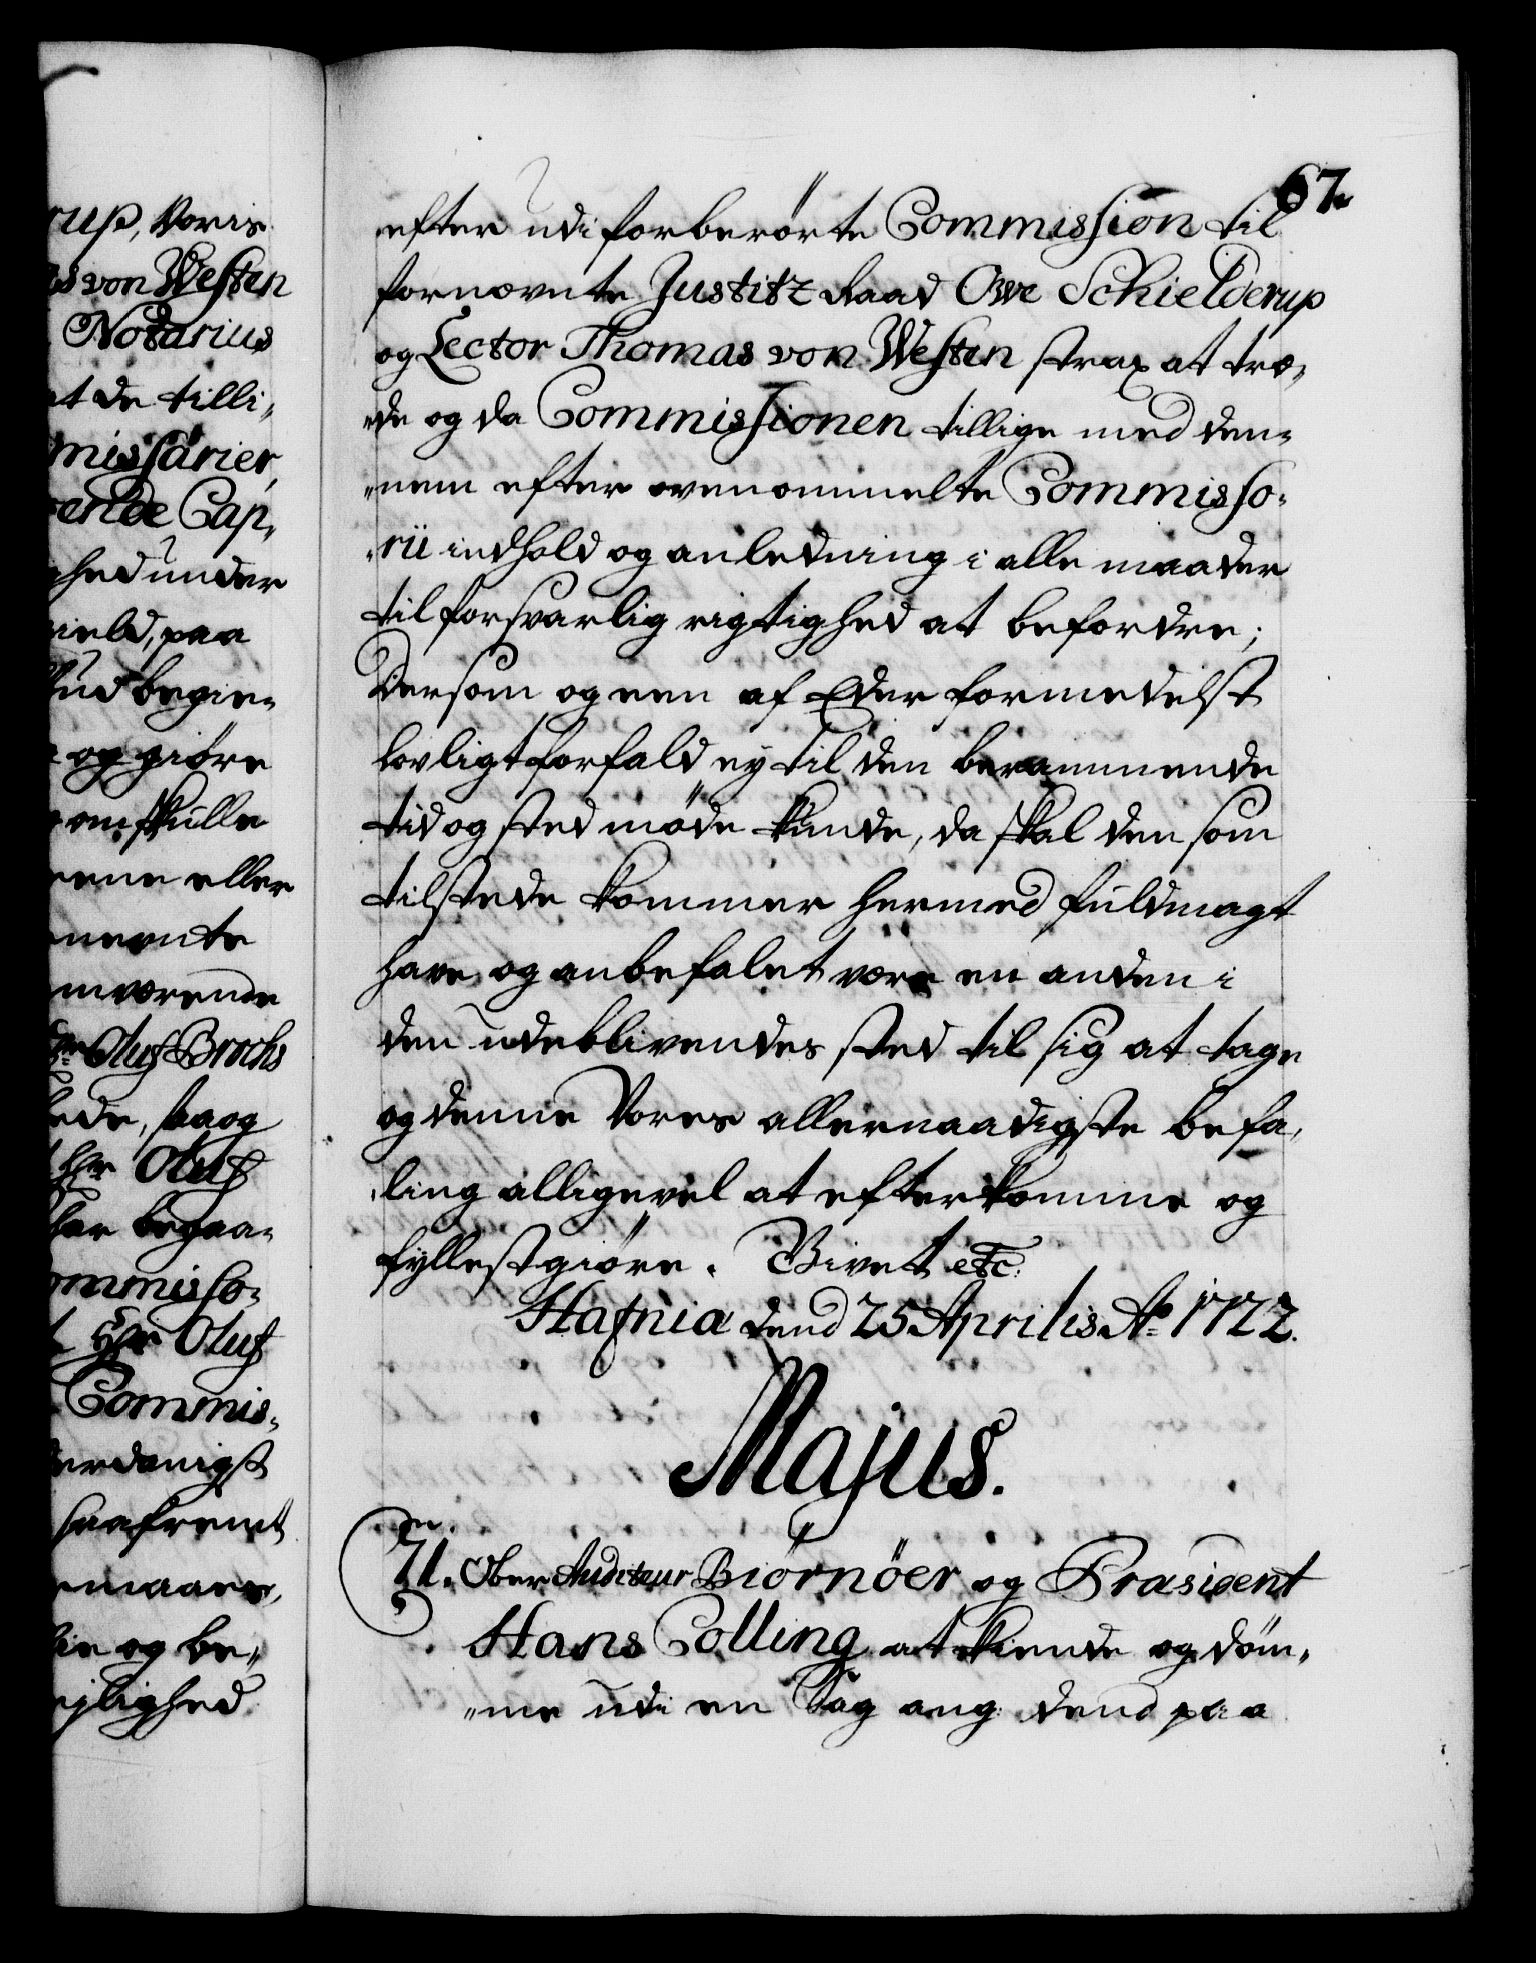 rup, Voris
s von Westen
Notarius
at de tilli„
missarier,
ende Cap„
hed under
ield, paa
lud begie„
og giöre
om skulle
eene eller
nevnte
mværende
Hr Oluf Brochs
ede, saa og
Hr Oluf
har begaa„
ommisso„
Hr Oluf
Commis„
erdanigst
saafremt
maaer,
ie og be„
ejlighed
67.
efter udi forberörte Commission til
fornævnte Justitz Raad Owe Schielderup
og Lector Thomas von Westen strax at træ„
„de og da Commissionen tillige med den„
„nem efter ovenommelte Commisso„
„rii indhold og anledning i alle maader
til forsvarlig rigtighed at befordre;
Dersom og een af Eder formedelst
lovligt forfald ey til den berammende
tid og sted möde kunde, da skal den som
tilstede kommer hermed fuldmagt
have og anbefalet være en anden i
den udeblivendes sted til sig at tage
og denne Vores allernaadigste befa„
„ling alligevel at efterkomme og
fyllestgiöre. Givet etc:
Hafnia dend 25 Aprilis Ao 1722.
Majus.
71. Ober Auditeur Biörnöer og Præsident
Hans Colling at kiende og döm„
„me udi en Sag ang: dend paa